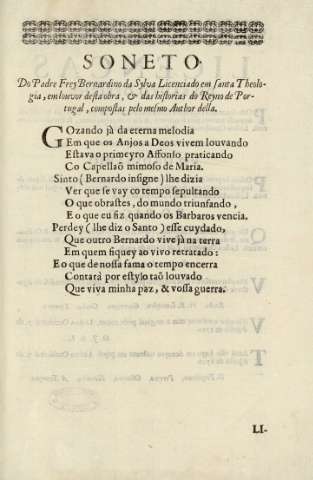 SONETO
Do Padre Frey Bernardino da Sylua Licenciado em santa Theolo-
gia, em louvor desta obra, & das historias do Reyno de Por-
tugal, compostas pelo mesmo Author della.
GOzando jà da eterna melodia
Em que os Anjos a Deos vivem louvando
Estava o primeyro Affonso praticando
Co Capellaõ mimoso de Maria.
Sinto (Bernardo insigne) lhe dizia
Ver que se vay co tempo sepultando
O que obrastes, do mundo triunfando,
E o que eu fiz quando os Barbaros vencia.
Perdey (lhe diz o Santo) esse cuydado,
Que outro Bernardo vive jà na terra
Em quem fiquey ao vivo retratado:
E o que de nossa fama o tempo encerra
Contará por estylo taõ louvado
Que viva minha paz, & vossa guerra.
LI-